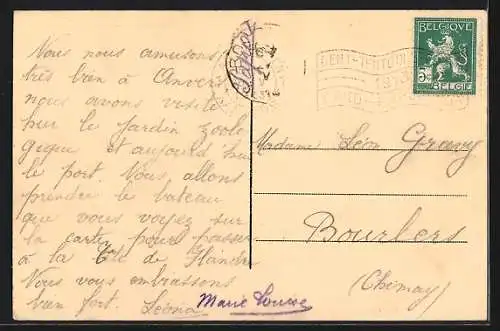 Nous nous amusons
très bien à Anvers
nous avons visité
hier le jardin zoolo
gique et aujourd'hui
le port. Nous allons
prendre le bateau
que vous voyez sur
la carte pour passer
à la Tête de Flandre
Nous vous embrassons
bien fort. Léona Marie Louise
BELGIQUE
5 BELGIE
GENT-TENTOON
1913
Madame Léon Gravy
Bourlers
(Chimay)